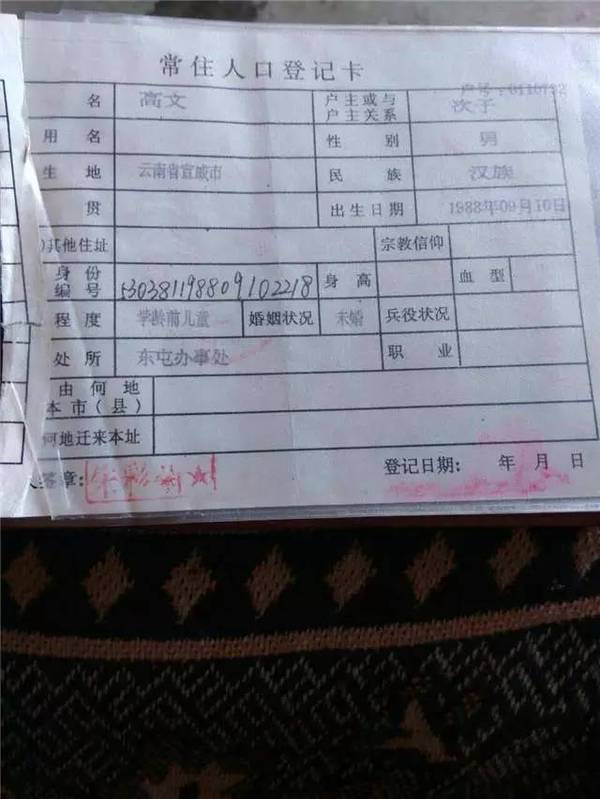 常住人口登记卡
户号:0110732
名 高文 户主或与户主关系 次子
用名 性别 男
生地 云南省宣威市 民族 汉族
贯 出生日期 1988年09月10日
)其他住址 宗教信仰
身份编号 530381198809102218 身高 血型
程度 学龄前儿童 婚姻状况 未婚 兵役状况
处所 东屯办事处 职业
由何地
本市(县)
何地迁来本址
签章: 登记日期: 年 月 日